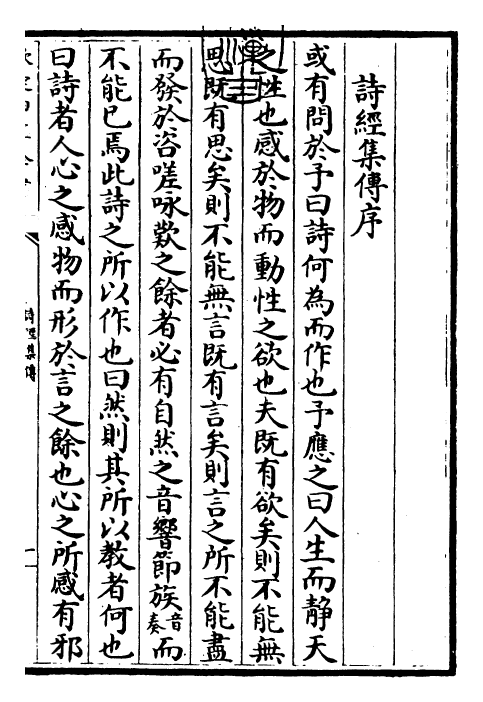 詩經集傳序
或有問於予曰詩何為而作也予應之曰人生而靜天
之性也感於物而動性之欲也夫既有欲矣則不能無
思既有思矣則不能無言既有言矣則言之所不能盡
而發於咨嗟咏歎之餘者必有自然之音響節族音奏而
不能已焉此詩之所以作也曰然則其所以教者何也
曰詩者人心之感物而形於言之餘也心之所感有邪
詩經集傳